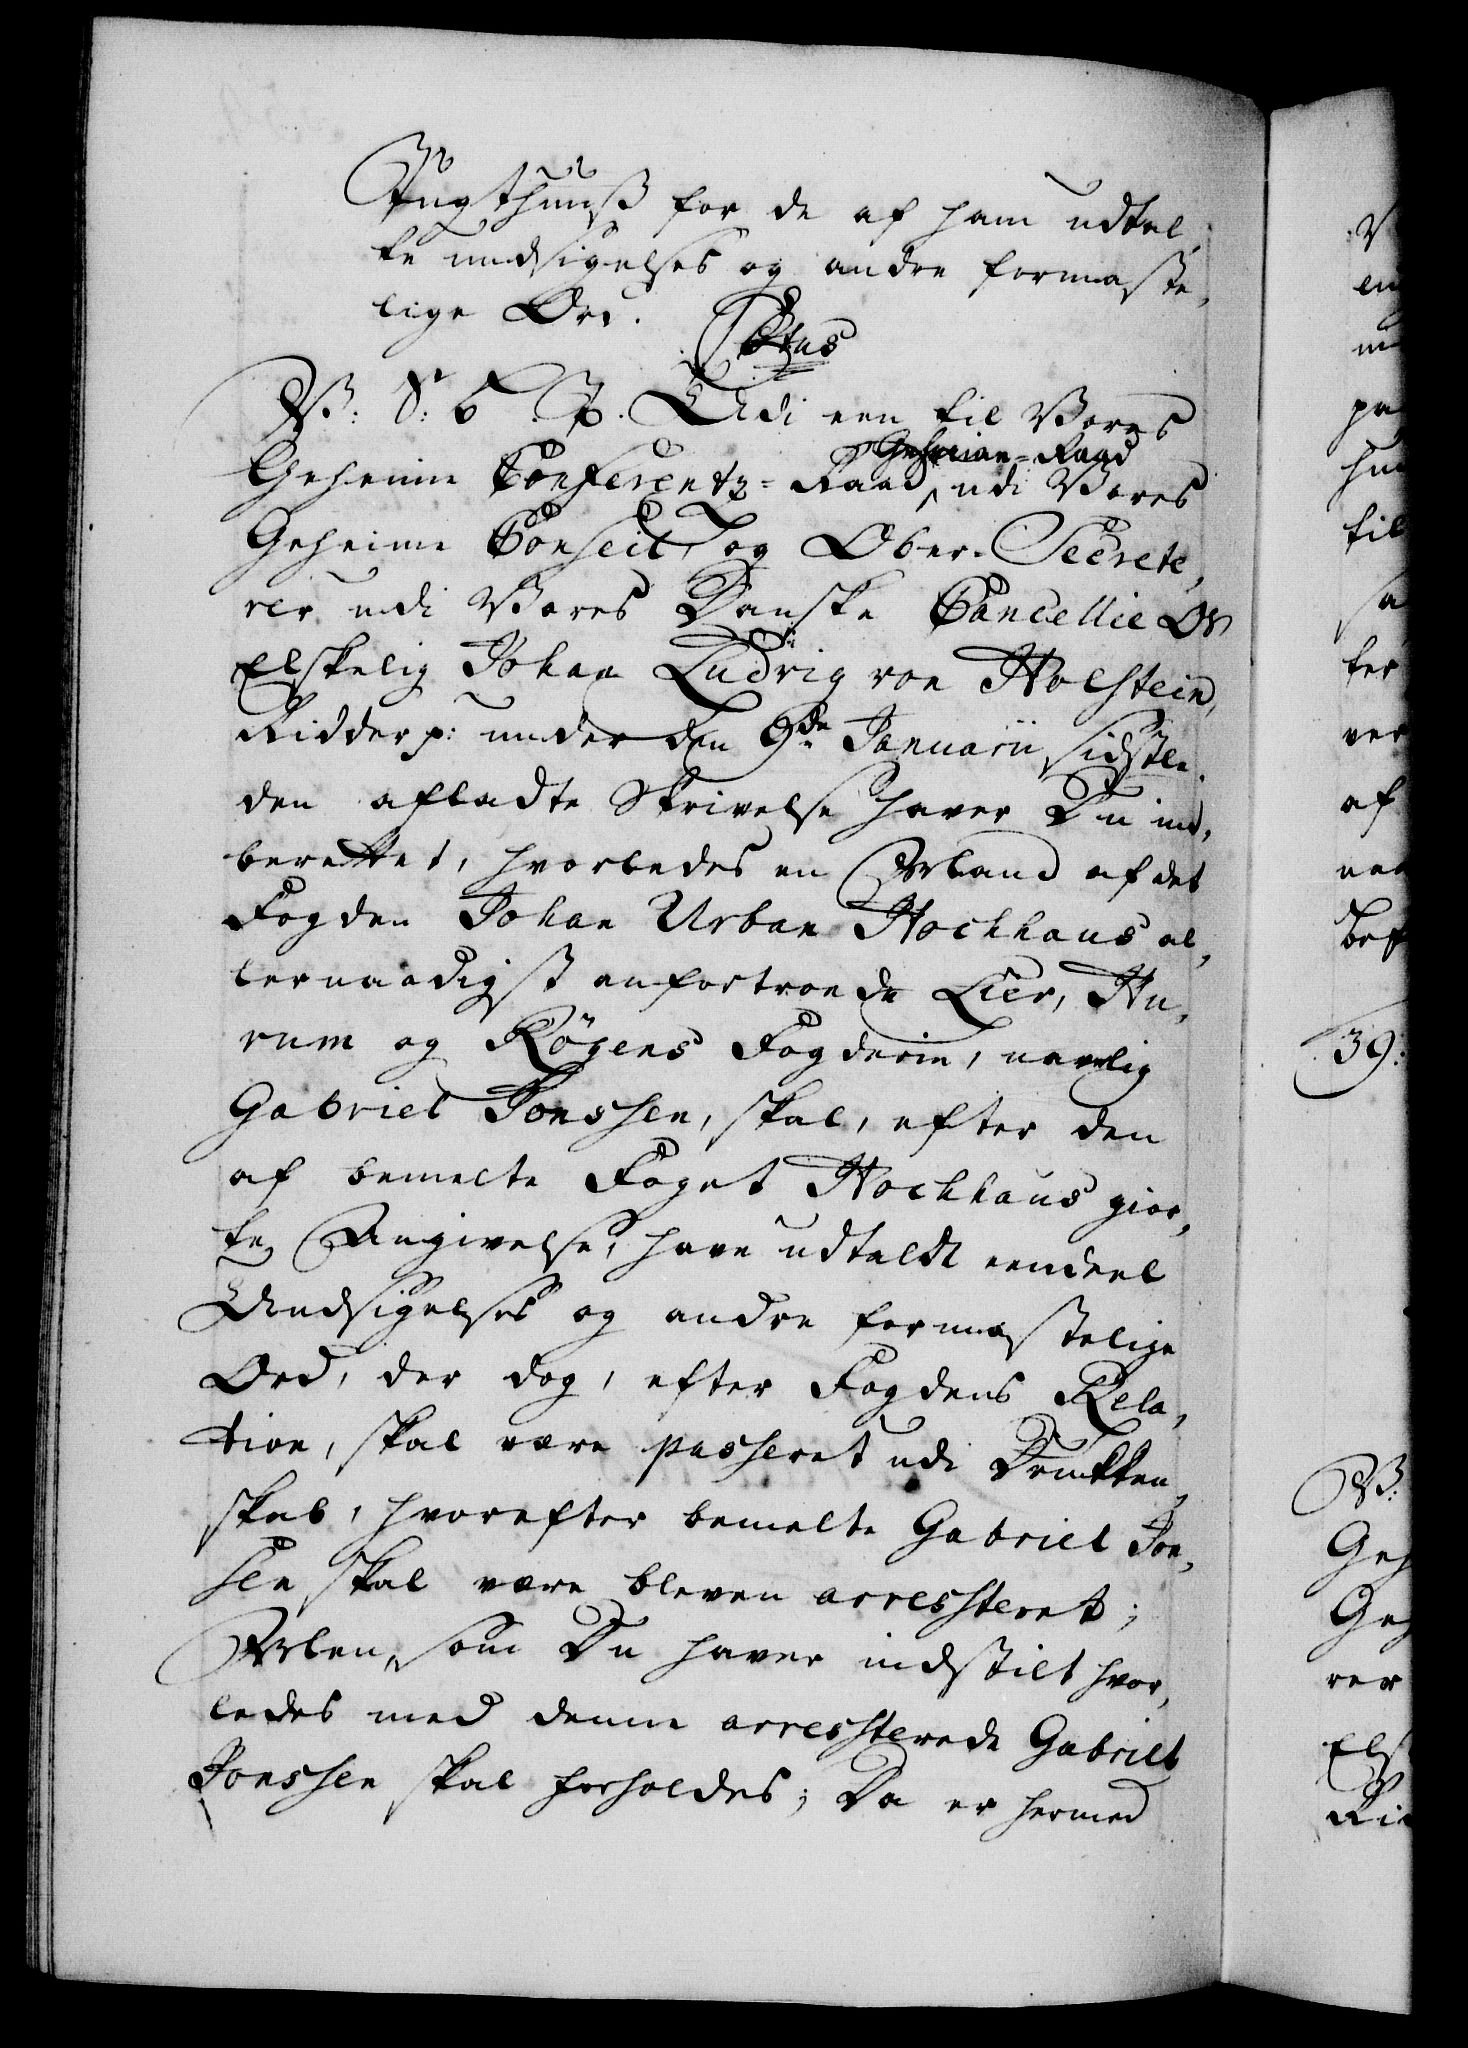 Tugthuuß for de af ham udtal,
te undsigelser og andre formaste,
lige Ord.
Ctus
W: S: G: T. Udi een til Vores
Geheime Conferentz-Raad, Geheime-Raad udi Vores
Geheime Conseil, og Ober-Secrete,
rer udi Vores Danske Cancellie Os
Elskelig Johan Ludvig von Holstein,
Ridder p: under den 9de Januarii sidstle,
den afladte Skrivelse haver Du ind,
berettet, hvorledes en Arband af det
Fogden Johan Urban Hochhaus al,
lernaadigst anfortroede Lier, Hu,
rum og Røgens Fogderie, navnlig
Gabriel Jonssen, skal, efter den
af bemelte Foget Hochhaus gior,
te Angivelse, have udtaldt eendeel
Undsigelser og andre formastelige
Ord, der dog, efter Fogdens Rela,
tion, skal være passeret udi Drukken,
skab, hvorefter bemelte Gabriel Jon,
sen skal være bleven arressteret;
Arlen, som Du haver indstilt hvor,
ledes med denne arressterede Gabriel
Jonssen skal forholdes; Da er hermed
39: